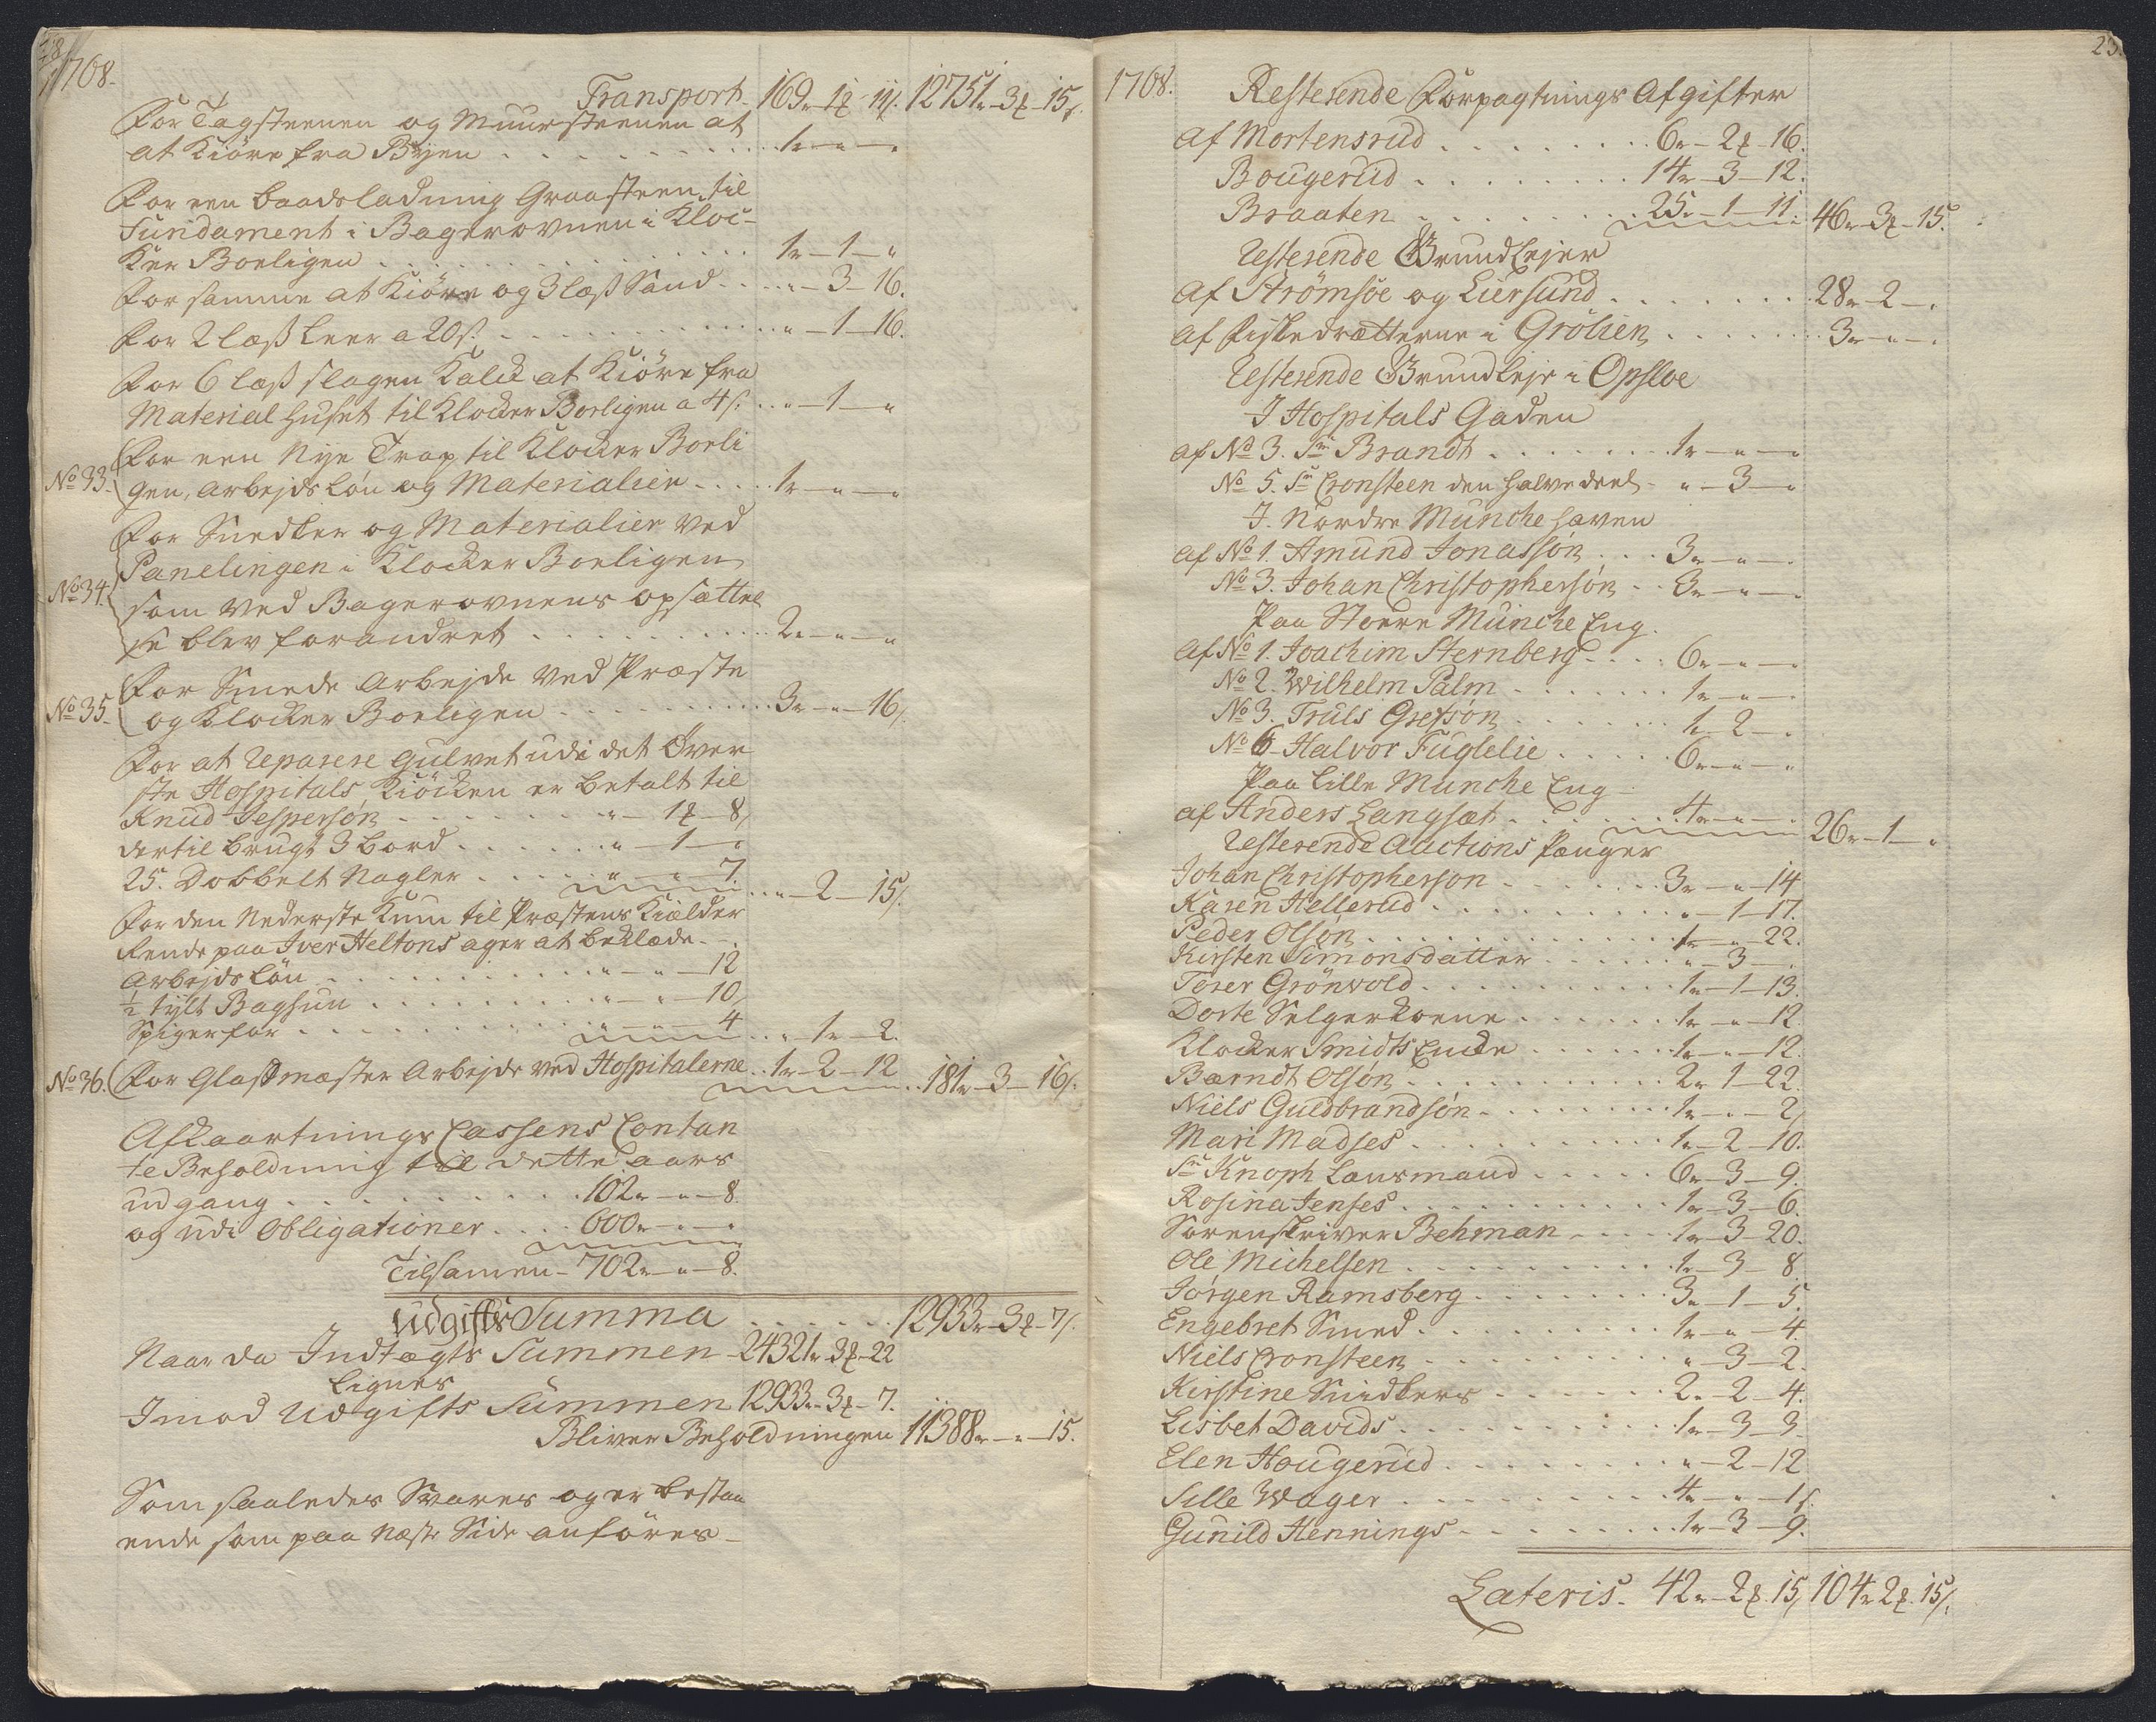 1768.
Transport. 169r-1ȣ-11s. 12751r-3ȣ-15s.
For Tagsteenen og Muursteenen at
at Kiöre fra Byen . . . 1r-"-"
For een baadsladning Graasteen til
Fundament i Bagerovnen i Kloc-
ker Boeligen . . . 1r-1-"
For samme at Kiöre og 3 læss Sand . . "-3-16.
For 2 læss Leer a 20s. . . . "-1-16.
For 6 læss slagen Kalck at Kiöre fra
Material Huset til Klocker Boeligen a 4s. . . "-1-"
For een Nye Trap til Klocker Boeli
No 33. gen, Arbejds Lön og Materialier . . 1r-"-"
For Snedker og Materialier ved
Panelingen i Klocker Boeligen
No 34. som ved Bagerovnens opsættel
se blev forandret . . . 2r-"-"
For Smede Arbejde ved Præste
No 35. og Klocker Boeligen . . . 3r-"-16s.
For at Reparere gulvet udi det Øver
ste Hospitals Kiöcken er betalt til
Knud Jespersön . . . "-1ȣ-8s
dertil brugt 3 bord . . . "-1-"
25. Dobbelt Nagler . . . "-"-7. . . "-2-15s.
For den Nederste Kum til Præstens Kielder
Rende paa Iver Heltons ager at beklæde.
Arbejds Lön . . . "-"-12
½ tylt Bagsun . . . "-"-10s
Spiger for . . . "-"-4 . . "-1r-2.
No 36. For Glassmæster Arbejde ved Hospitalerne . . 1r-2-12 . . 181r-3-16s.
Afkaartnings Cassens Contan
te Beholdning til dette aars
udgang . . . 102r-"-8.
og udi Obligationer . . . 600r-"-"
Tilsamen - 702r-"-8.
Udgifts Summa . . . 12933r-3ȣ-7s.
Naar da Indtægts Summen 24321r-3ȣ-22
Lignes
Imod Udgifts Summen 12933r-3ȣ-7.
Bliver Beholdningen 11388r-"-15.
Som saaledes Svares og er bestaa
ende som paa næste Side anföres -
1768.
Resterende Forpagtnings Afgifter
af Mortensrud . . . 6r-2ȣ-16.
Bougerud . . . 14r-3-12.
Braaten . . . 25r-1-11. 46r-3ȣ-15.
Resterende Grundlejer
af Strömsöe og Liersund . . . 28r-2-"
af Fiskedrætterne i Grölien . . . 3r-"-"
Resterende Grundleje i Opsloe
I Hospitals Gaden
af No 3. Sr Brandt . . . 1r-"-"
No 5. Sr Cronsteen den halve deel - "-3-"
I. Nordre Munche Haven
af No 1. Amund Jonassön . . . 3r-"-"
No 3. Johan Christophersön . . 3r-"-"
Paa Stoere Munche Eng.
af No 1. Joachim Sternberg . . . 6r-"-"
No 2. Wilhelm Palm . . . 1r-"-"
No 3. Truls Gretsön . . . 1-2-"
No 6 Halvor Fuglelie . . . 6r-"-"
Paa Lille Munche Eng
af Anders Langsæt . . . 4r-"-" 26r-1-"
Resterende Auctions Penger
Johan Christopherson . . . 3r-"-14
Karen Hellerud . . . "-1-17.
Peder Olsön . . . 1r-"-22.
Kirsten Simonsdatter . . . "-3-"
Torer Grönvold . . . 1r-1-13.
Dorte Selgerkoene . . . 1r-"-12.
Klocker Smidts Encke . . . 1r-"-12.
Barndt Olsön . . . 2r-1-22.
Niels Guldbrandsön . . . 1r-"-2s
Mari Madses . . . 1r-2-10.
Sr Knoph Lansmand . . . 6r-3-9.
Rosina Jenses . . . 1r-3-6.
Sorenskriver Behman . . . 1r-3-20.
Ole Michelsen . . . 1r-3-8
Jörgen Ramsberg . . . 3r-1-5.
Engebret Smed . . . 1r-"-4.
Niels Cronsteen . . . "-3-2.
Kirstine Snidkers . . . 2r-2-4.
Lisbet Davids . . . 1r-3-3.
Elen Hougerud . . . "-2-12
Sille Wager . . . 4r-"-1s.
Gunild Hennings . . . 1r-3-9.
Lateris. 42r-2ȣ.15s 104r2ȣ.15s.